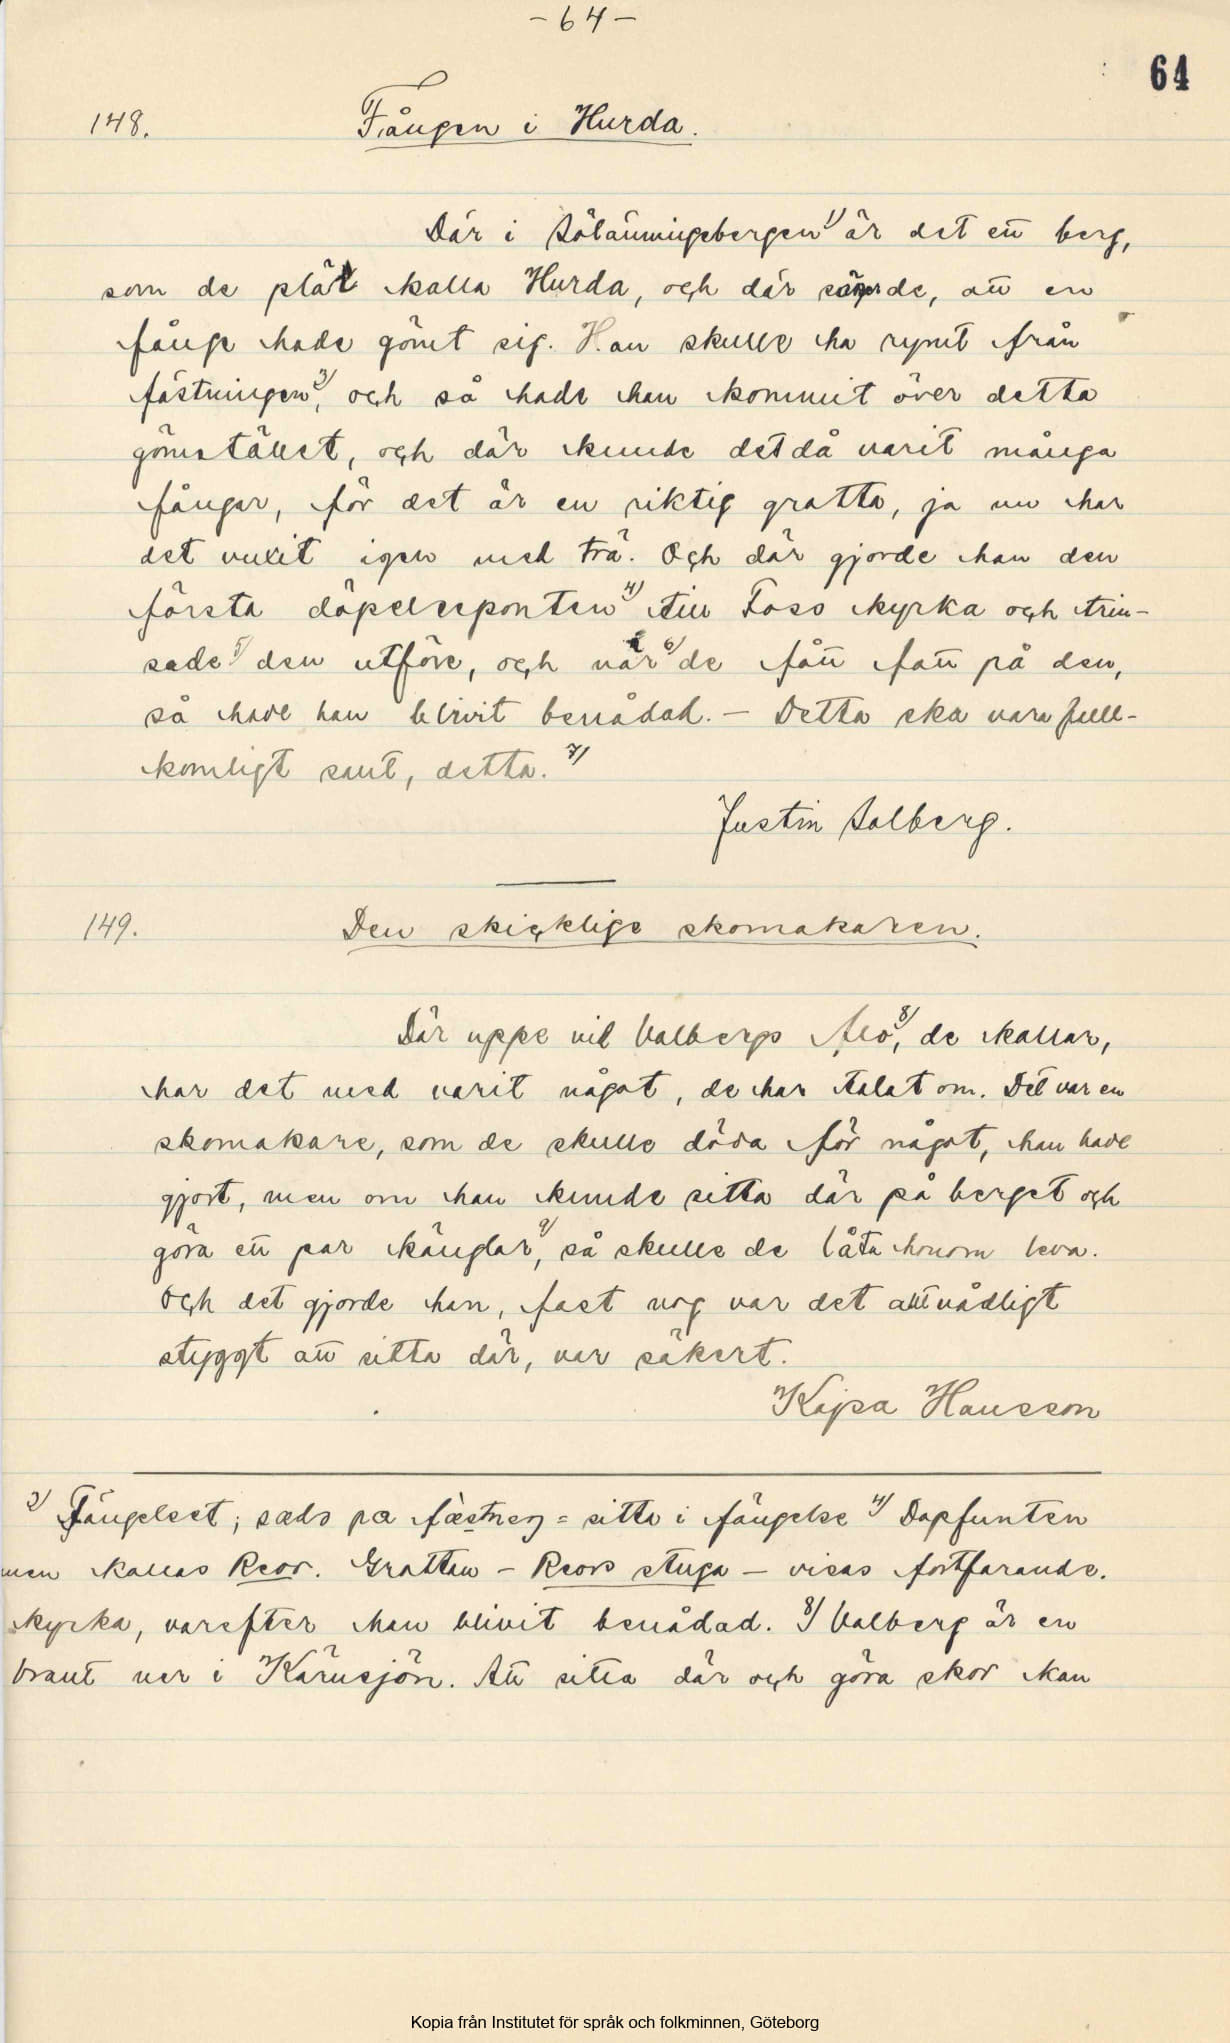 -64-
64
148. Fången i Hurda.
Där i Sölänningebergen 1) är det ett berg,
som de plär kalla Hurda, och där sägs de, att en
fånge hade gömt sig. Han skulle ha rymt från
fästningen 2), och så hade han kommit över detta
gömstället, och där kunde det då varit många
fångar, för det är en riktig gratta, ja nu har
det vuxit igen med trä. Och där gjorde han den
första döpelseponten 4) till Foss kyrka och trin-
sade 5) den utföre, och när 6) de fått fatt på den,
så hade han blivit benådad. - Detta ska vara full-
komligt sant, detta. 7)
Justin Solberg.
149. Den skicklige skomakaren.
Där uppe vid Valbergs flo 8), de kallar,
har det med varit något, de har talat om. Det var en
skomakare, som de skulle döda för något, han hade
gjort, men om han kunde sitta där på berget och
göra ett par känglar 9), så skulle de låta honom leva.
Och det gjorde han, fast nog var det attvådligt
styggt att sitta där, var säkert.
Kajsa Hansson
2) Fängelset; sads pa fæstneng = sitta i fängelse 4) Dopfunten
men kallas Reor. Grattan - Reors stuga - visas fortfarande.
kyrka, varefter han blivit benådad. 8) Valberg är en
brant ner i Kärnsjön. Att sitta där och göra skor kan
Kopia från Institutet för språk och folkminnen, Göteborg